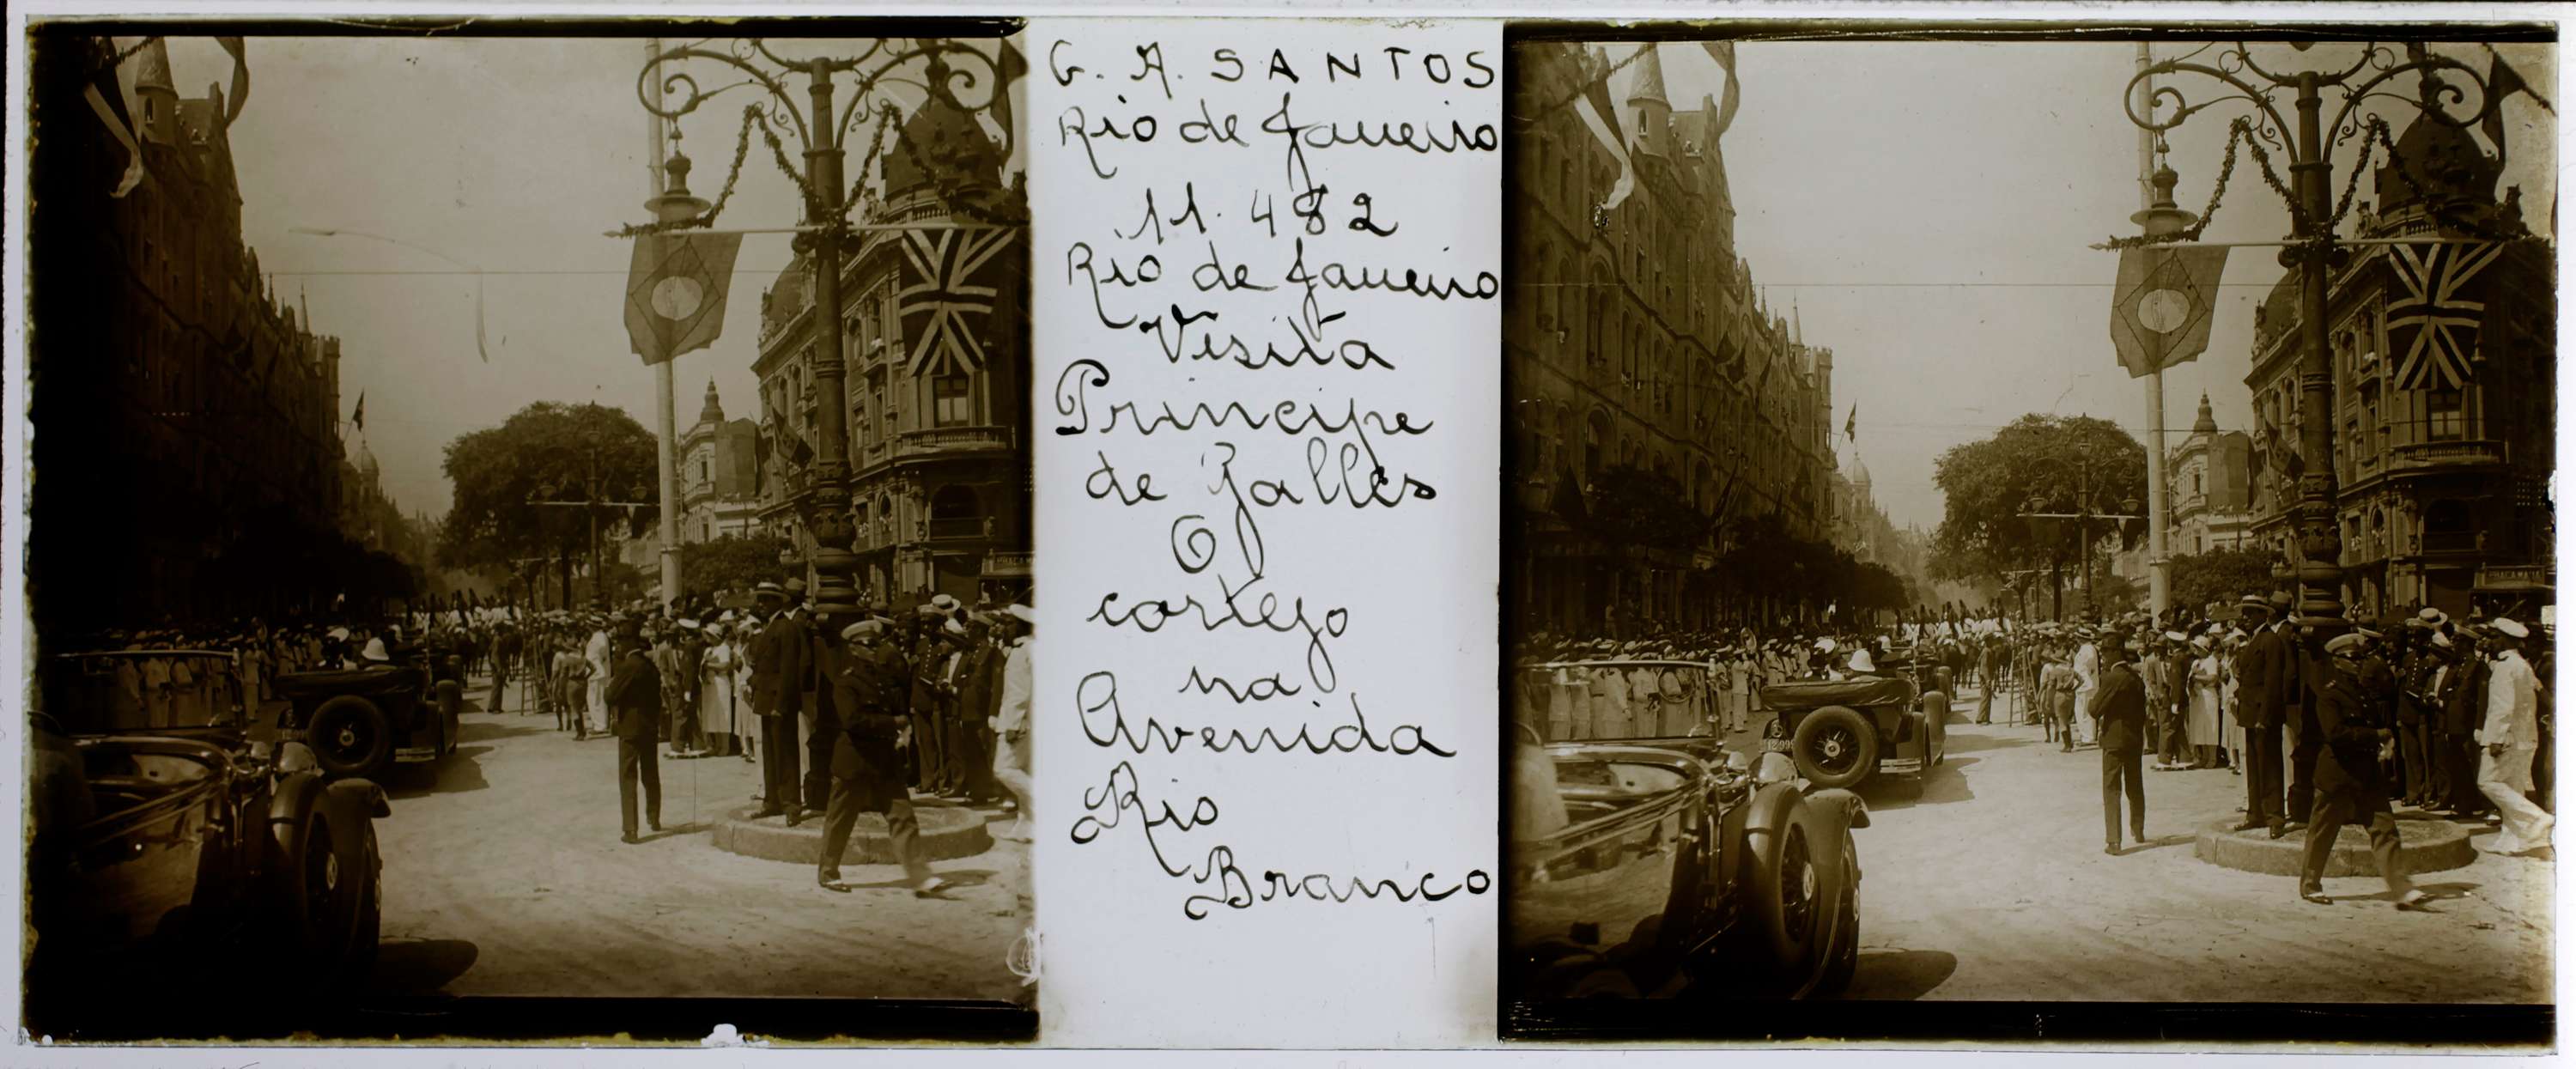 G. A. SANTOS
Rio de Janeiro
11.482
Rio de Janeiro
Visita
Principe
de Galles
O
cortejo
na
Avenida
Rio
Branco